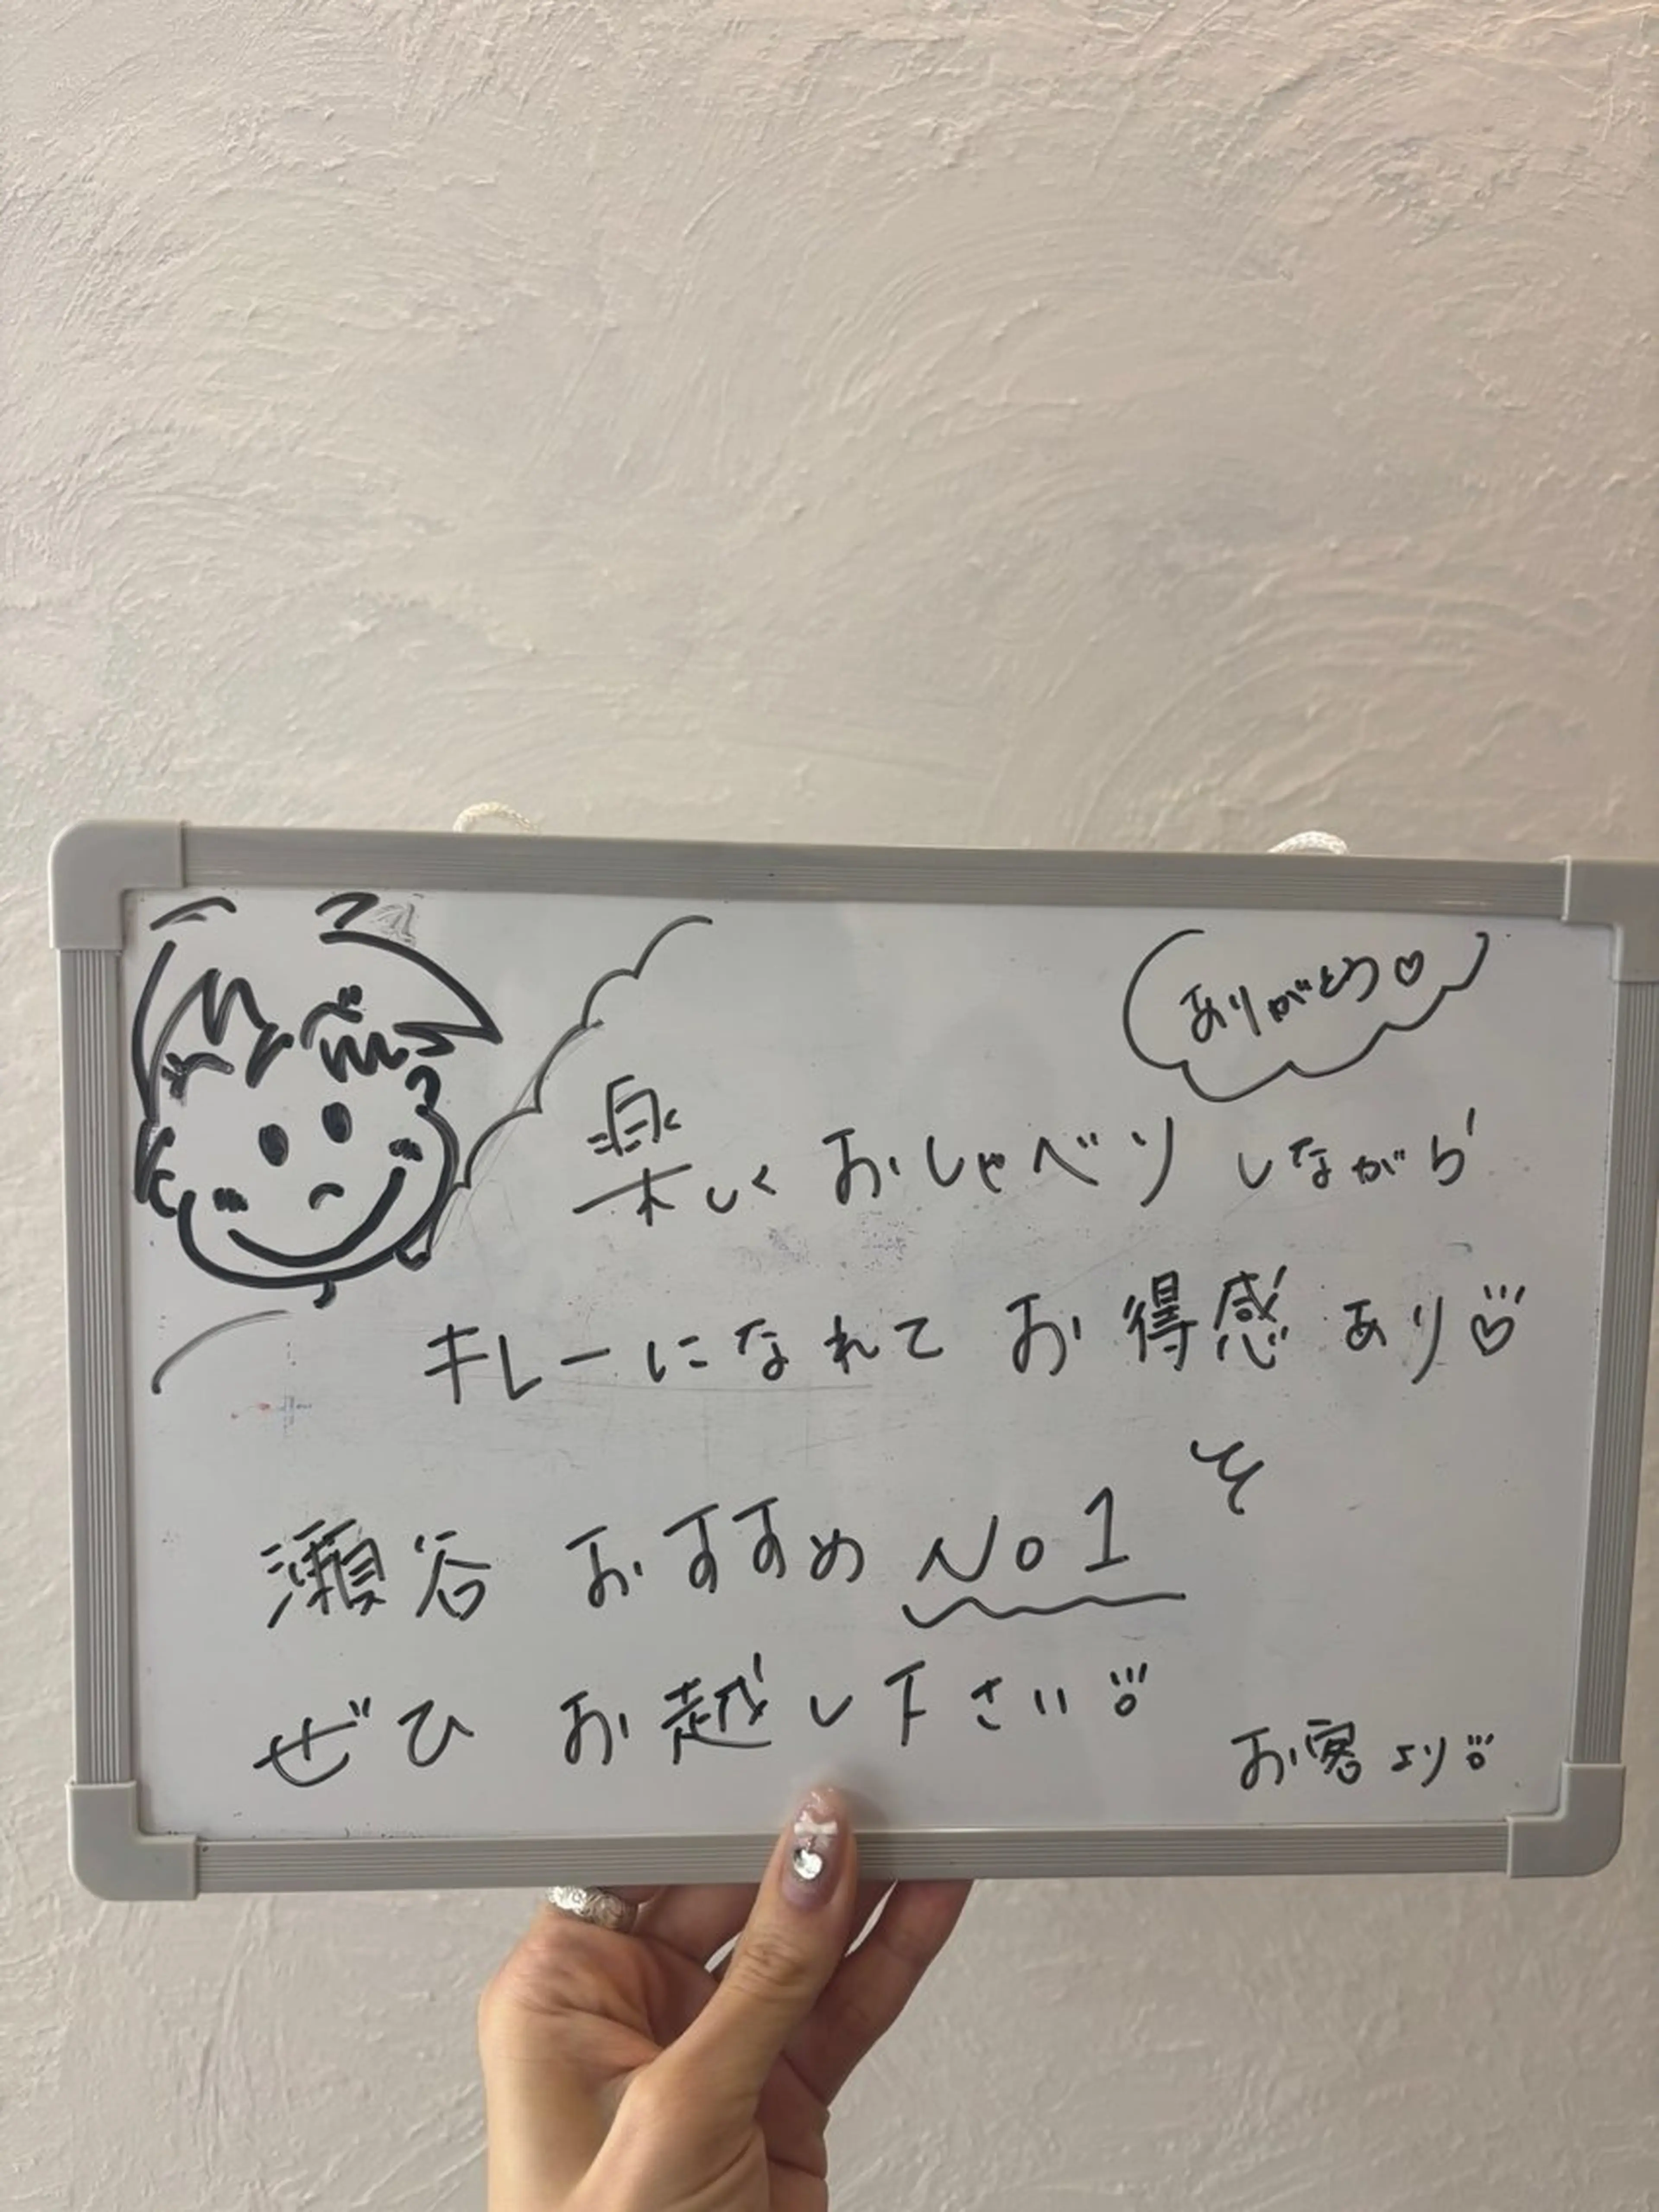 ありがとう♡
楽しくおしゃべりしながら
キレーになれてお得感あり♡
瀬谷おすすめNo1
ぜひお越し下さい
お客より